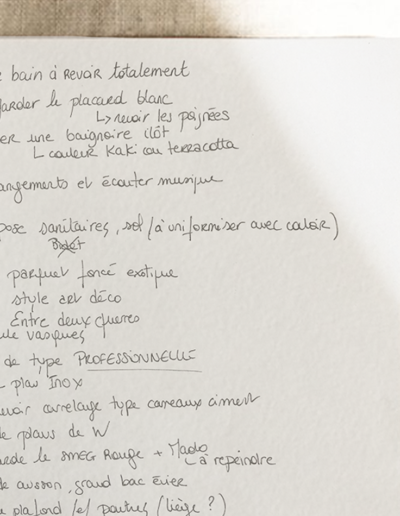 bain à REVOIR totalement
garder le placard blanc
↳ revoir les poignées
une baignoire îlot
↳ couleur KaKi ou terracotta
rangements et écouter musique
pose sanitaires, sol (à uniformiser avec couloir)
Bidet
parquet foncé exotique
style art déco
Entre deux guerres
vasques
de type PROFESSIONNELLE
plan Inox
carrelage type carreaux ciment
plans de W
le SMEG Rouge + Mado
↳ à repeindre
grand bac évier
plafond /et poutres (liège ?)